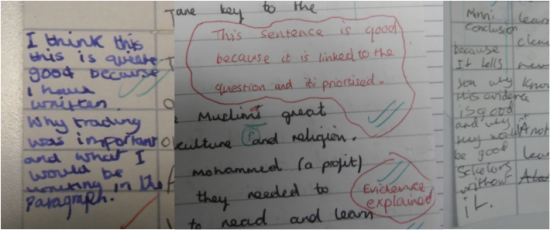 I think this
this is quite
good because
I have
written.
Why trading
was important
and what I
would be
in the
Paragraph.
key to the
This sentence is good
because it is linked to the
question and its prioritised.
Muslims great
culture and religion.
mohammed (a profit)
they needed to
Evidence
explained
to read and learn
Mini
conclusion
because
It tells
you why
this evidence
is good
and why
they would
be good
Scholars
without
it.